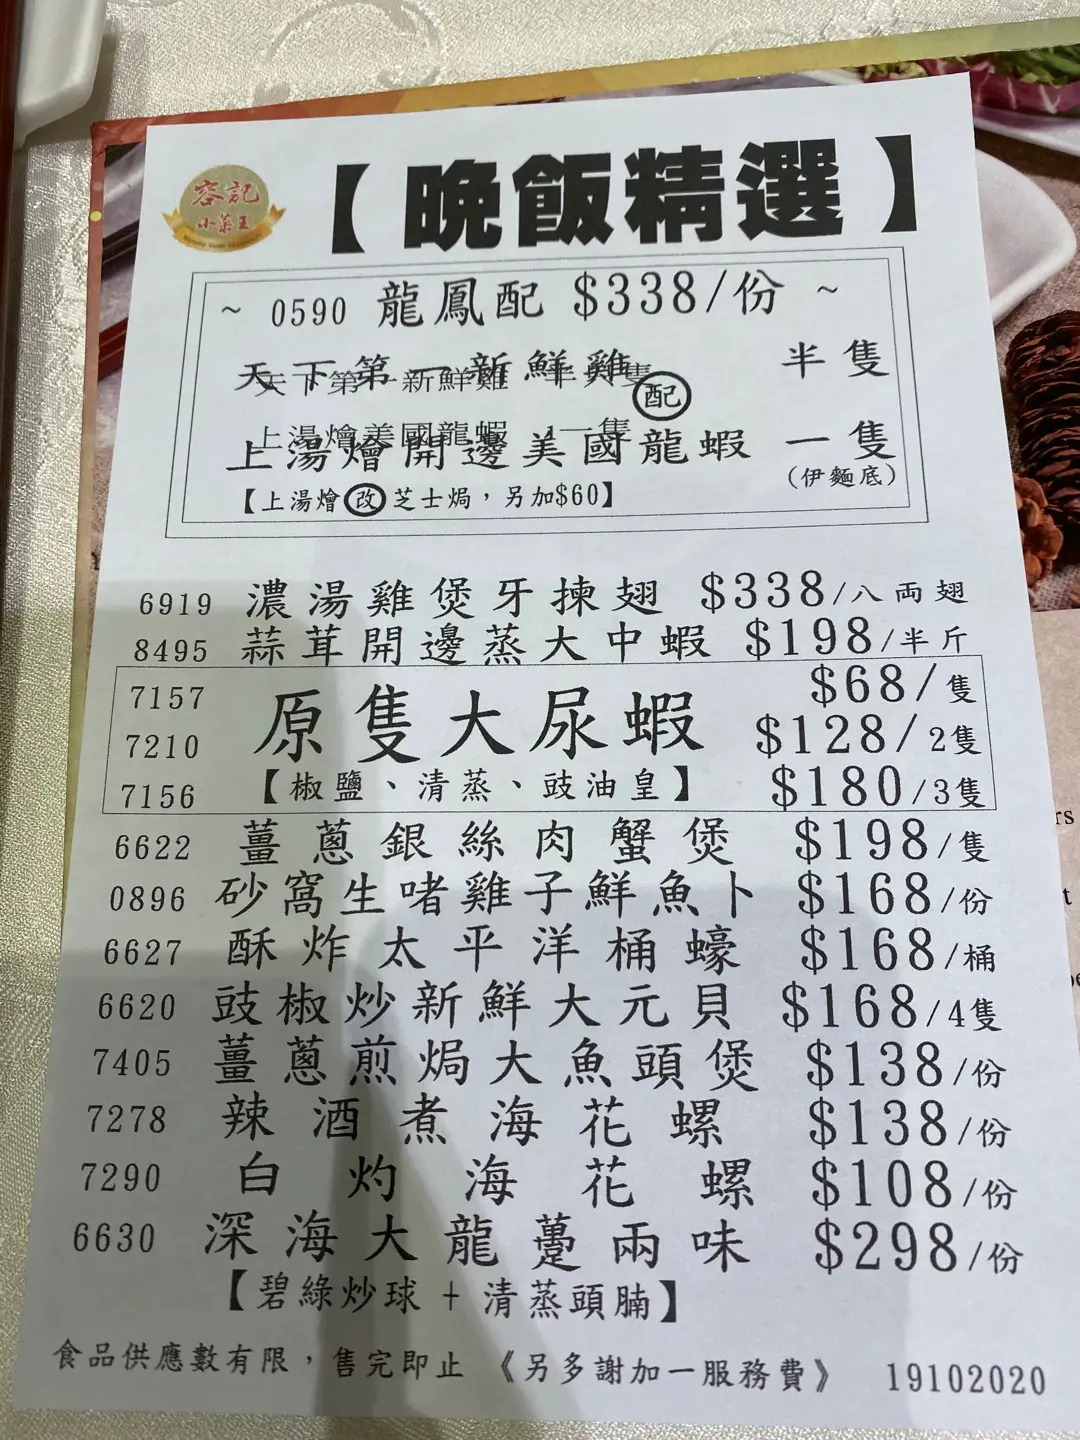 容記
小菜王
【晚飯精選】
~ 0590 龍鳳配 $338/份 ~
天下第一新鮮雞 半隻
天下第一新鮮雞 半隻
配
上湯燴美國龍蝦 一隻
上湯燴開邊美國龍蝦 一隻
(伊麵底)
【上湯燴改芝士焗，另加$60】
6919 濃湯雞煲牙揀翅 $338/八両翅
8495 蒜茸開邊蒸大中蝦 $198/半斤
7157 $68/隻
原隻大尿蝦
7210 $128/2隻
7156 【椒鹽、清蒸、豉油皇】 $180/3隻
6622 薑蔥銀絲肉蟹煲 $198/隻
0896 砂窩生啫雞子鮮魚卜 $168/份
6627 酥炸太平洋桶蠔 $168/桶
6620 豉椒炒新鮮大元貝 $168/4隻
7405 薑蔥煎焗大魚頭煲 $138/份
7278 辣酒煮海花螺 $138/份
7290 白灼海花螺 $108/份
6630 深海大龍躉兩味 $298/份
【碧綠炒球 + 清蒸頭腩】
食品供應數有限，售完即止 《另多謝加一服務費》 19102020